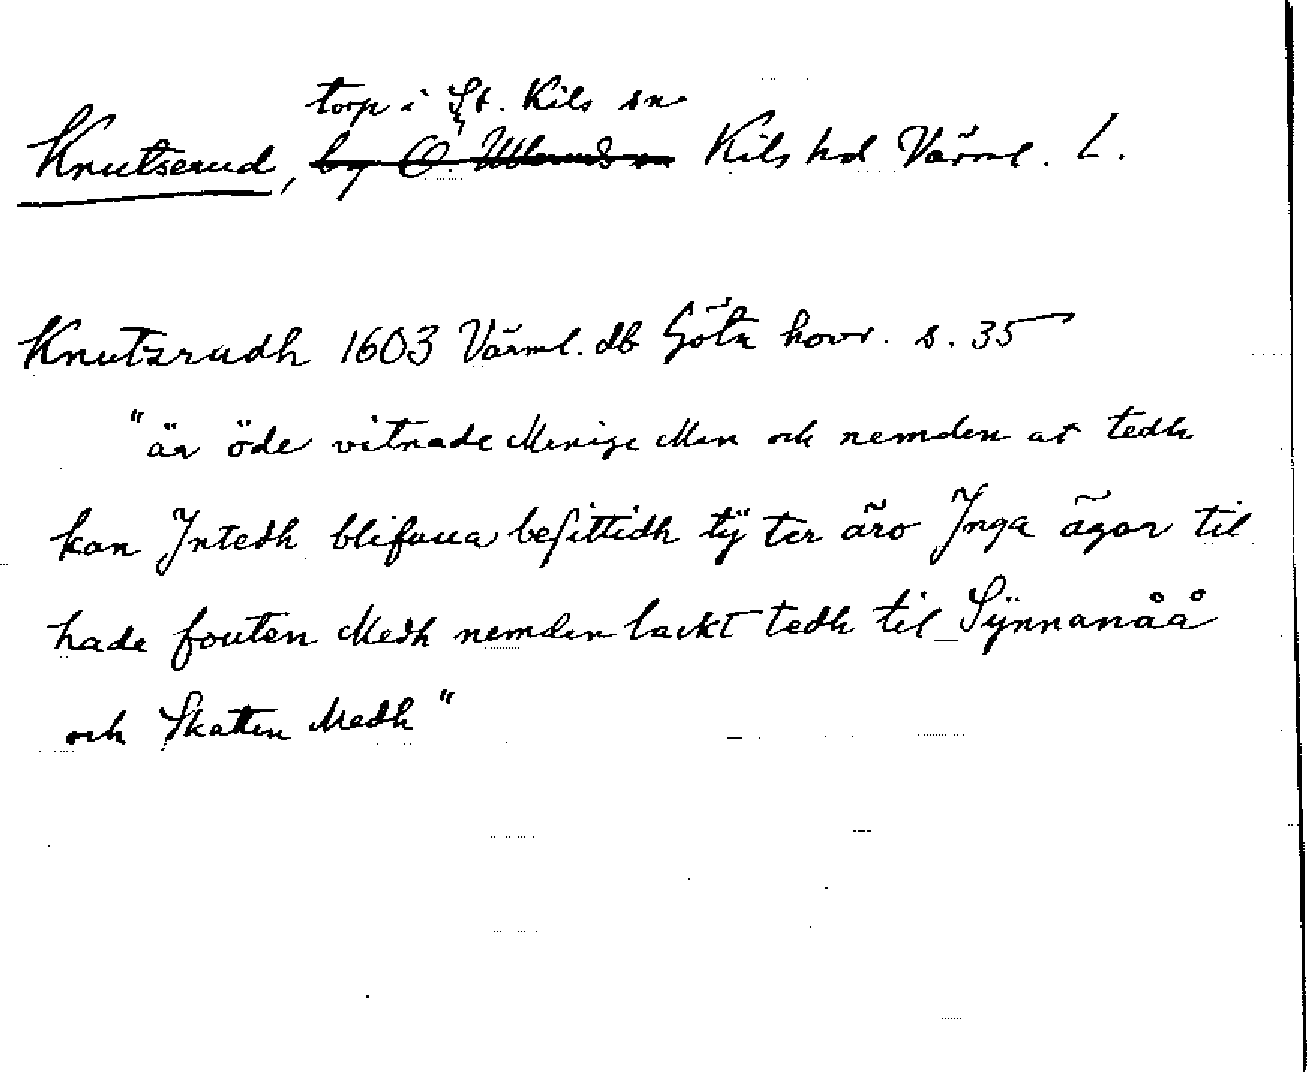 torp i St. Kils sn
Knutserud, by Ö. Ullerud sn Kils hd Värml. L.
Knutzrudh 1603 Värml. db Göta hovr. s. 35
"är öde vitnade Menige Men och nemden at tedh
kan Jntedh blifuua besittidh tÿ ter äro Jnga ägor til
hade fouten Medh nemden lackt tedh til Sÿnnanåå
och Skatten Medh"